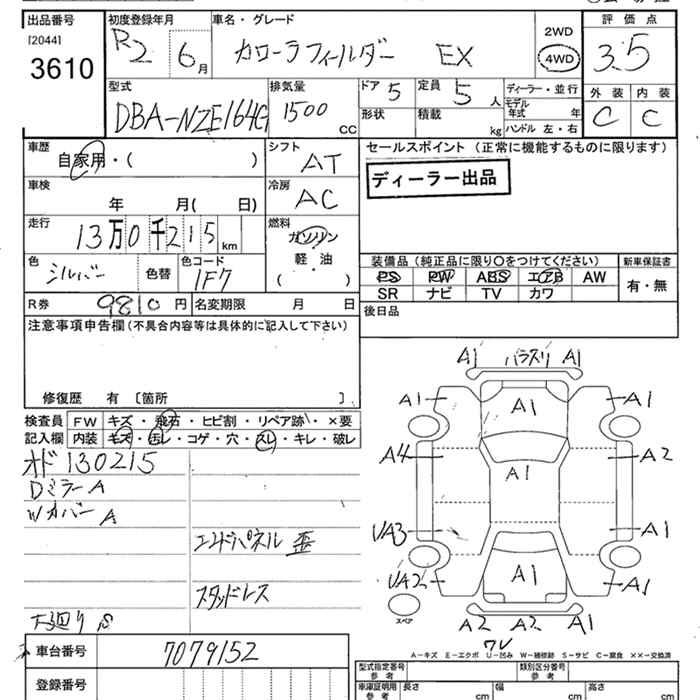 出品番号
[2044]
3610
初度登録年月
R2 6月
車名・グレード
カローラフィールダー EX
2WD
4WD
評価点
3.5
外装 内装
C C
型式
DBA-NZE164G
排気量
1500
CC
ドア 5
定員 5 人
形状
積載 kg
ディーラー・並行
モデル年式 年
ハンドル 左・右
車歴
自家用・( )
シフト
AT
セールスポイント (正常に機能するものに限ります)
ディーラー出品
車検
年 月( 日)
冷房
AC
走行
13万0千215km
燃料
ガソリン
軽・油
( )
色
シルバー
色替
色コード
1F7
装備品(純正品に限り〇をつけてください)
新車保証書
PS PW ABS エアB AW
SR ナビ TV カワ
有・無
R券 9810円
名変期限 月 日
後日品
注意事項申告欄(不具合内容等は具体的に記入して下さい)
修復歴 有 〔箇所 〕
検査員記入欄
FW キズ・飛石・ヒビ割・リペア跡・×要
内装 キズ・汚レ・コゲ・穴・スレ・キレ・破レ
オド 130215
Dミラー A
Wカバー A
エンドパネル 歪
スタッドレス
下廻り S
A1 バラスリ A1
A1 A1 A1
A4 A1 A2
UA3 A1
UA2 A1 A1
スペア
A2 A2 A1
ワレ
A-キズ E-エクボ U-凹み W-補修跡 S-サビ C-腐食 ××-交換済
車台番号
7079152
登録番号
型式指定番号
参考
類別区分番号
参考
車庫証明用
参考
長さ cm
幅 cm
高さ cm